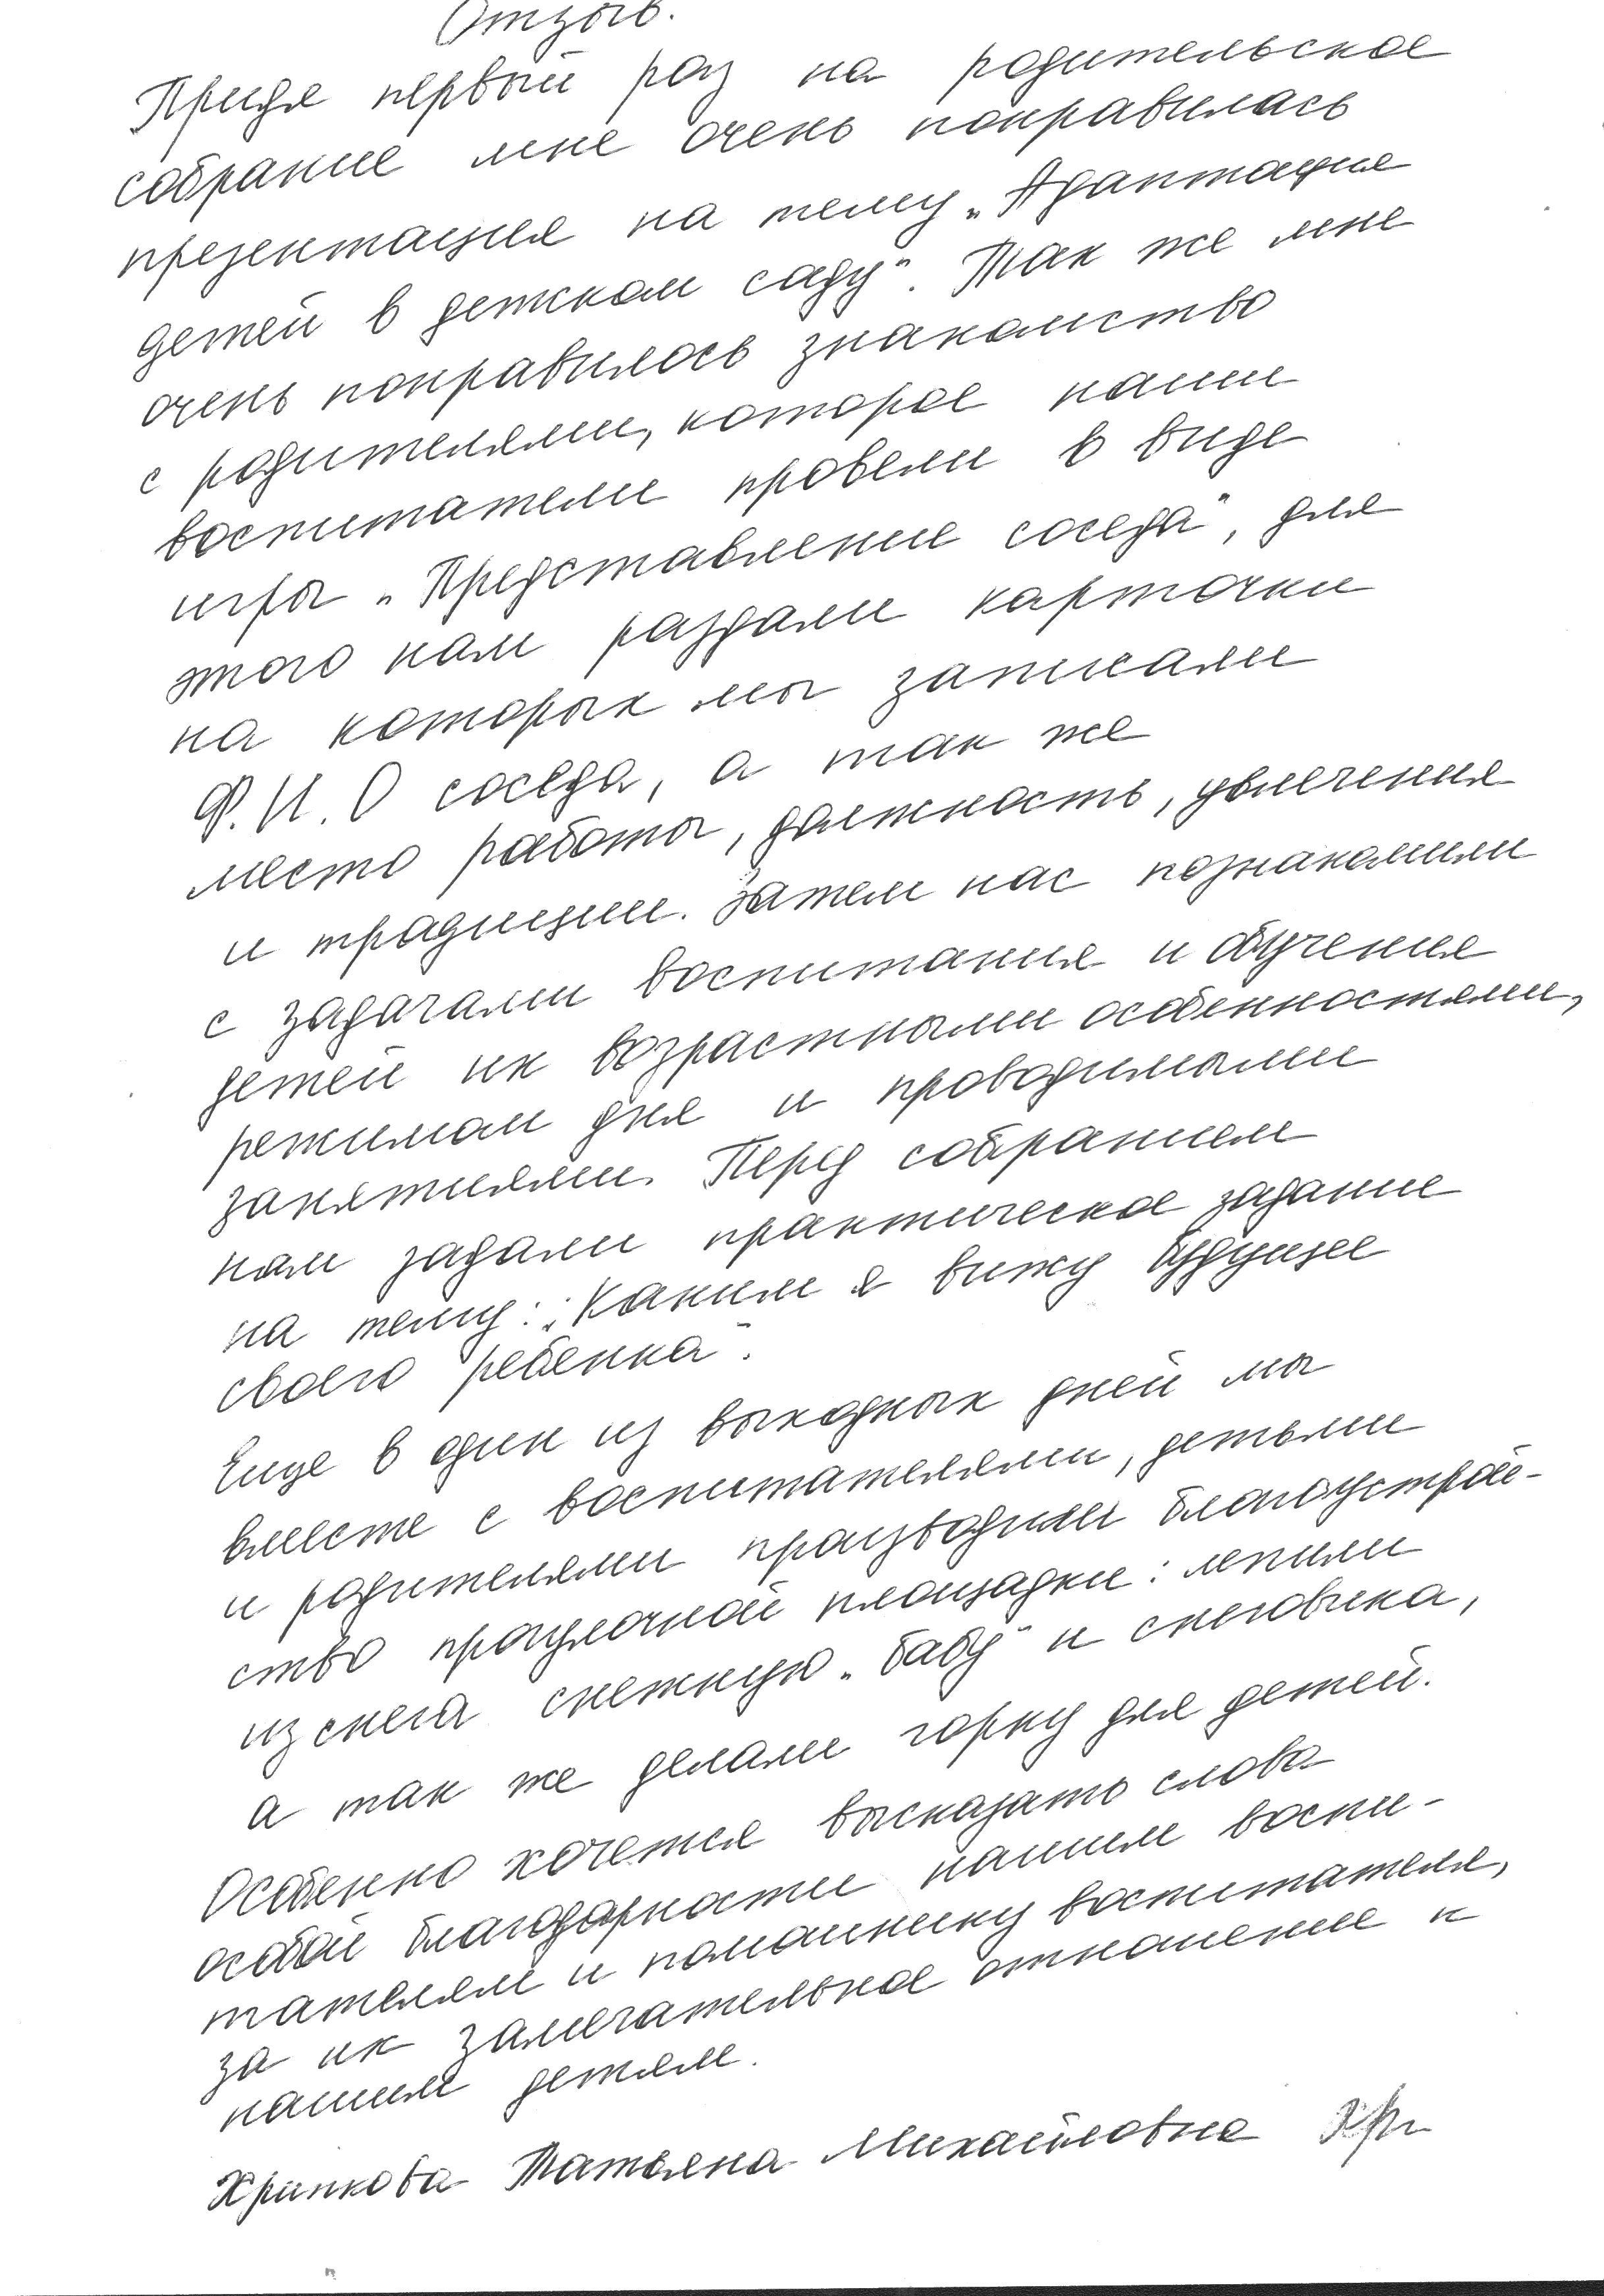 Отзыв.
Придя первый раз на родительское
собрание мне очень понравилась
презентация на тему „Адаптация
детей в детском саду". Так же мне
очень понравилось знакомство
с родителями, которое наши
воспитатели провели в виде
игры „Представление соседа", для
этого нам раздали карточки
на которых мы записали
Ф.И.О соседа, а так же
место работы, должность, увлечения
и традиции. Затем нас познакомили
с задачами воспитания и обучения
детей их возрастными особенностями,
режимом дня и проводимыми
занятиями. Перед собранием
нам задали практическое задание
на тему: „Каким я вижу будущее
своего ребенка".
Еще в один из выходных дней мы
вместе с воспитателями, детьми
и родителями производили благоустрой-
ство прогулочной площадки: лепили
из снега снежную „бабу" и снеговика,
а так же делали горку для детей.
Особенно хочется высказать слова
особой благодарности нашим воспи-
тателям и помощнику воспитателя,
за их замечательное отношение к
нашим детям.
Хрипкова Татьяна Михайловна